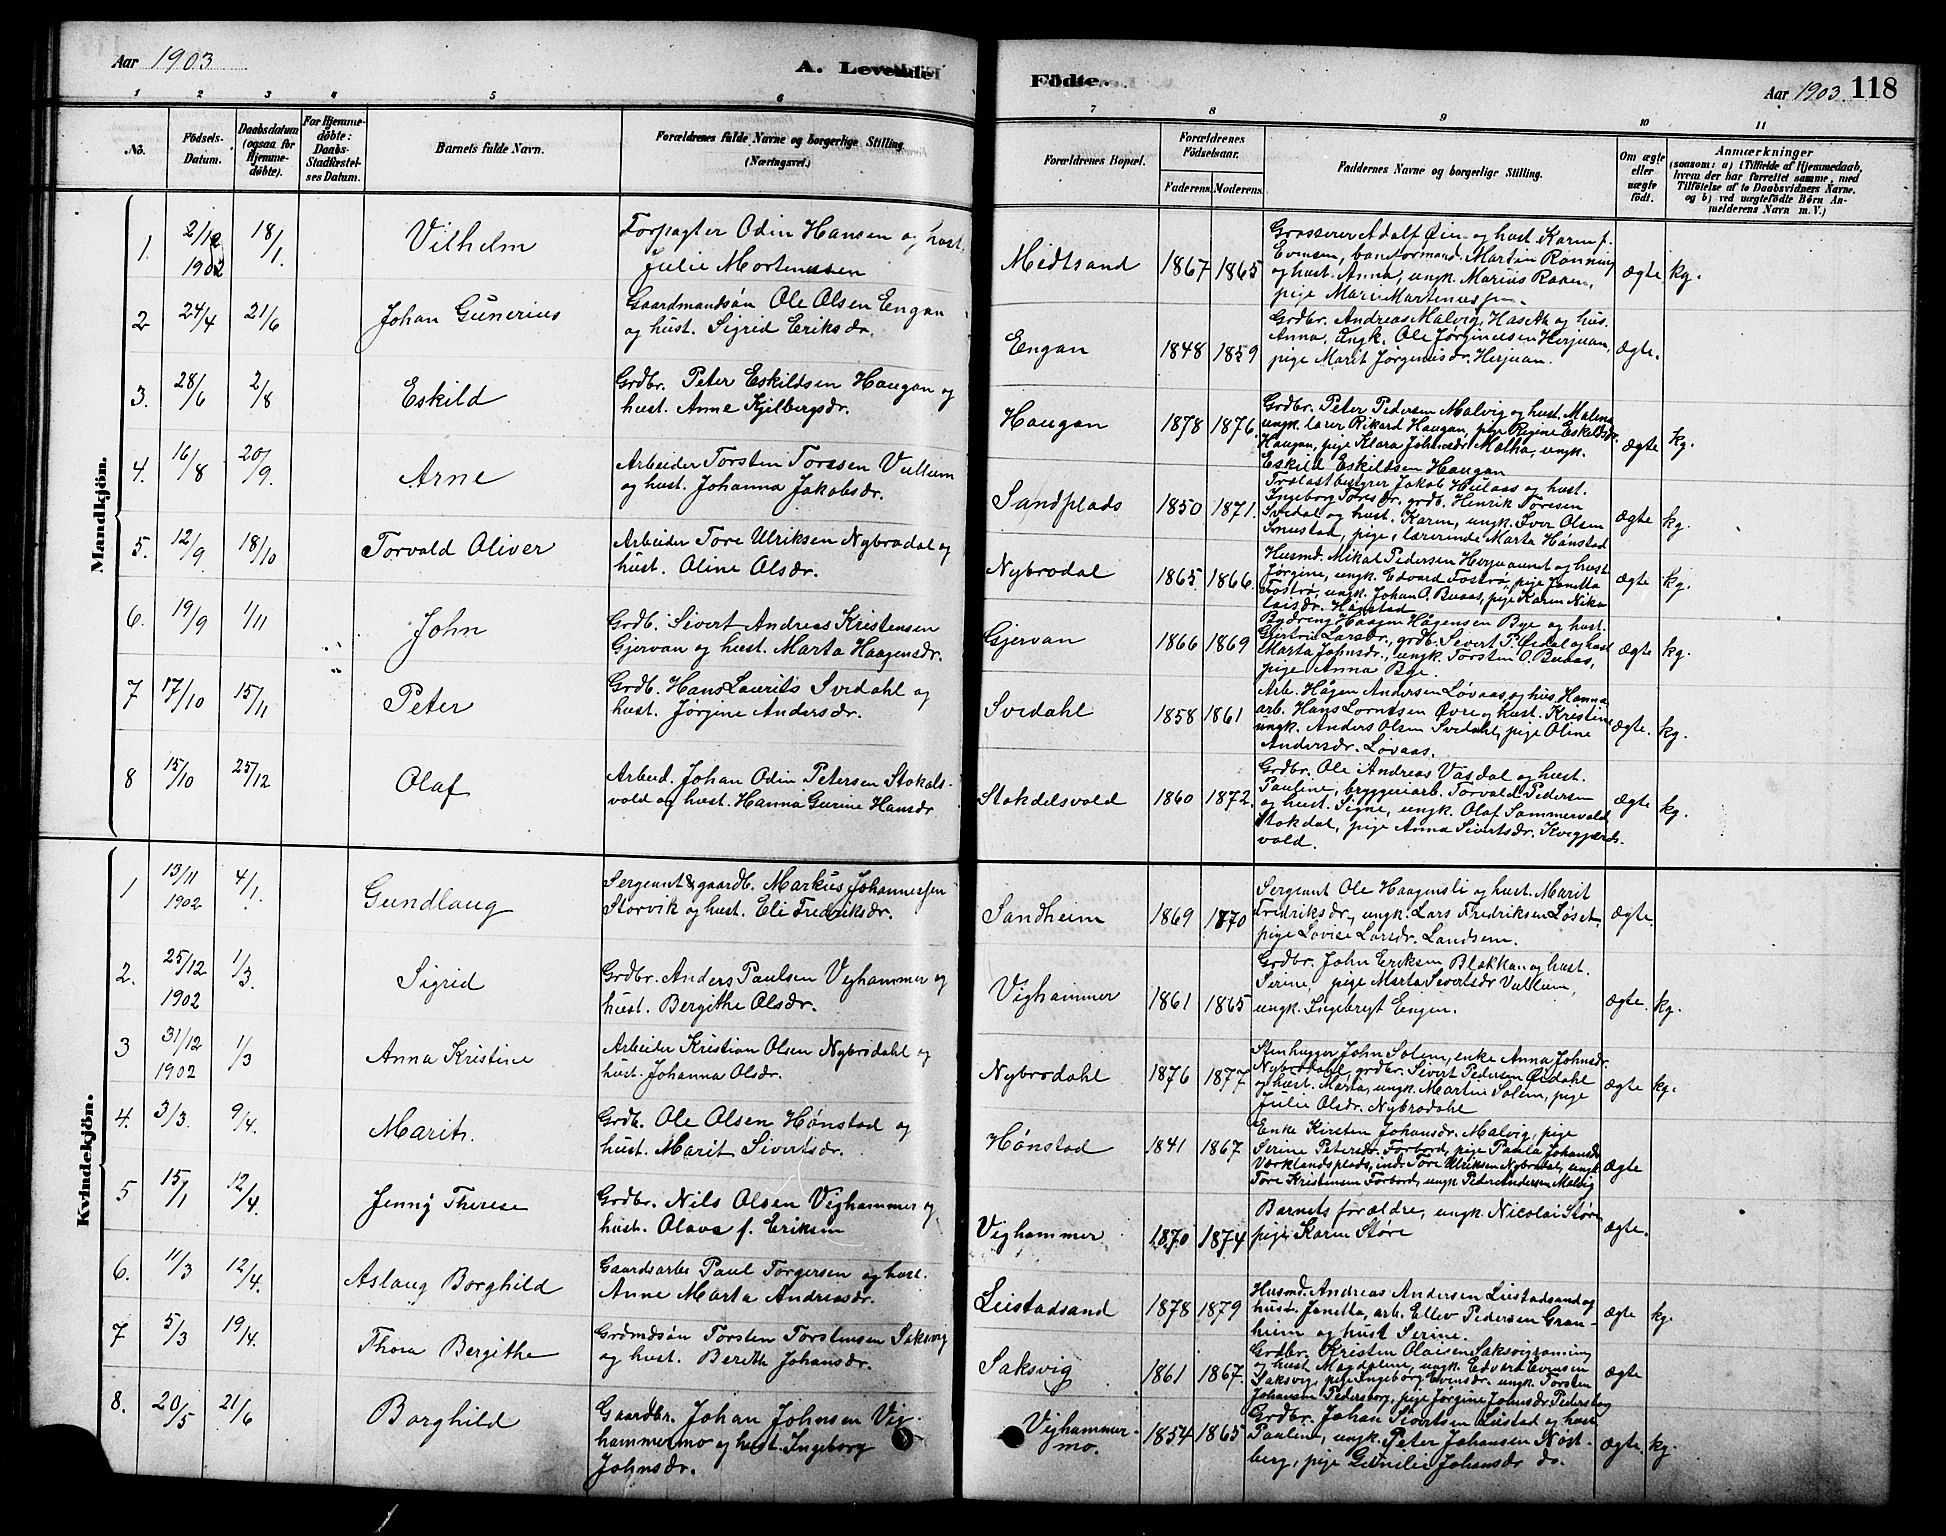 Aar 1903
A. Levende
Födte.
Aar 1903. 118
1 2 3 4 5 6 7 8 9 10 11
No.
Födsels-Datum.
Daabsdatum (ogsaa for Hjemme-döbte).
For Hjemme-döbte: Daabs-Stadfæstel-ses Datum.
Barnets fulde Navn.
Forældrenes fulde Navne og borgerlige Stilling.
(Næringsvei.)
Forældrenes Bopæl.
Forældrenes Födselsaar.
Faderens. Moderens.
Faddernes Navne og borgerlige Stilling.
Om ægte eller uægte födt.
Anmærkninger
(saasom: a) i Tilfælde af Hjemmedaab,
hvem der har forrettet samme, med
Tilföielse af to Daabsvidners Navne.
og b) ved uægtefödte Börn An-
melderens Navn m. V.)
Mandkjön.
1. 2/12 1902 18/1. Vilhelm
Forpagter Odin Hansen og hust.
Julie Mortenssen
Midtsand 1867 1865
Grosserer Adolf Øien og hust. Karen f.
Evensen, baneformand Morten Rønning
og hust. Anna, ungk. Marius Raaen,
pige Marie Martenussen.
ægte kg.
2 24/4 21/6 Johan Gunerius
Gaardmandsøn Ole Olsen Engan
og hust. Sigrid Eriksdr.
Engan 1848 1859
Grdbr. Andreas Malvig, Haseth og hus.
Anna, ungk. Ole Jørginussen Herjuan,
pige Marit Jørginusdr. Herjuan.
ægte.
3. 28/6 2/8 Eskild
Grdbr. Peter Eskildsen Haugan og
hust. Anne Kjelbergsdr.
Haugan 1878 1876.
Grdbr. Peter Pedersen Malvig og hust. Malena
ungk. lærer Rikard Haugan, pige Regine Eskildsdr.
Haugan, pige Klara Johnsdr. Malka, ungk.
Eskild Eskildsen Haugan
ægte kg.
4. 16/8 20/9. Arne
Arbeider Torsten Torssen Vullum
og hust. Johanna Jakobsdr.
Sandplads 1850 1871.
Trælastbestyrer Jakob Hulaas og hust.
Ingeborg Toresdr. grdb. Henrik Toresen
Svedal og hust. Karen, ungk. Iver Olsen
Smustad, pige, lærerinde Marta Hønstad
ægte kg.
5. 12/9 18/10 Torvald Oliver
Arbeider Tore Ulriksen Nybrodal og
hust. Oline Olsdr.
Nybrodal 1865 1866
Husmd. Mikal Pedersen Herjuaunet og hust.
Jørgine, ungk. Edvard Fostrø, pige Janetta
Fostrø, ungk. Johan O. Buaas, pige Karen Niko-
laisdr. Hønstad
ægte kg.
6. 19/9 1/11 John
Grdb. Sivert Andreas Kristensen
Gjervan og hust. Marta Haagensdr.
Gjervan 1866 1869
Bygdreng Haagen Hågensen Bye og hust.
Gjertrud Larsdr., grdb. Sivert P. Øsdal og hust
Marta Johnsdr., ungk. Torsten O. Buaas,
pige Anna Bye.
ægte kg.
7 17/10 15/11 Peter
Grdb. Hans Laurits Svedahl og
hust. Jørgine Andersdr.
Svedahl 1858 1861
Arb. Hågen Andersen Løvaas og hus. Hanna
arb. Hans Lorntsen Øvre og hust. Kristine
ungk. Anders Olsen Svedahl, pige Oline
Andersdr. Løvaas.
ægte. kg.
8 15/10 25/12 Olaf
Arbeid. Johan Odin Petersen Stokdals-
vold og hust. Hanna Gurine Hansdr
Stokdelsvold 1860 1872.
Grdbr. Ole Andreas Vasdal og hust.
Pauline, bryggeriarb. Torvald Pedersen
og hust. Signe, ungk. Olaf Sammervold
Stokdal, pige Anna Sivertsdr. Kvegjærds-
vold.
ægte kg.
Kvindekjön.
1 13/11 1902 4/1. Gundlaug
Sergeant & gaardb. Markus Johannessen
Storvik og hust. Eli Fredriksdr.
Sandheim 1869 1870
Sergeant Ole Haagensli og hust. Marit
Fredriksdr., ungk. Lars Fredriksen Løset,
pige Lovise Larsdr. Landsem.
ægte.
2. 25/12 1902 1/3. Sigrid
Grdbr. Anders Paulsen Vighammer og
hust. Bergithe Olsdr.
Vighammer 1861 1865
Grdbr. John Eriksen Blekkan og hust.
Serine, pige Marta Sivertsdr Vullum,
ungk. Ingebregt Engen.
ægte kg.
3 31/12 1902 1/3 Anna Kristine
Arbeider Kristian Olsen Nybrodahl og
hust. Johanna Olsdr.
Nybrodahl 1876 1877
Stenhugger John Solem, enke Anna Johnsdr.
Nybrodahl, grdbr. Sivert Pedersen Øsdahl
og hust. Marta, ungk. Martin Solem, pige
Julie Olsdr. Nybrodahl
ægte kg.
4. 3/3. 9/4. Marit.
Grdb. Ole Olsen Hønstad og
hust. Marit Sivertsdr.
Hønstad 1841 1867
Enke Kirsten Johansdr. Malvig, pige
Serine Petersdr. Forbord, pige Paula Johansdr
Værklandsplads, indr. Tore Ulriksen Nybrodal, ungk
Tore Kristinsen Forbord, ungk Peder Andersen Malvig
ægte
5 15/1 12/4. Jenny Therese
Grdbr. Nils Olsen Vighammer og
hust. Olava f. Eriksen
Vighammer 1870 1874
Barnets forældre, ungk. Nicolai Støre,
pige Karen Støre
ægte.
6. 11/3 12/4. Aslaug Borghild
Gaardsarber Paul Torgersen og hust.
Anne Marta Andreasdr.
Leistadsand 1878 1879
Husmd. Andreas Andersen Leistadsand og
hust. Janetta, arb. Ellev Pedersen Gran-
heim og hust Serine.
ægte kg.
7 5/3 19/4. Thora Bergithe
Grdmdsøn Torsten Torstensen Saksvig
og hust. Bereth Johansdr.
Saksvig 1861 1867.
Grdbr. Kristen Olaisen Saksvigrønning
og hust. Magdalene, ungk. Edvard Evensen
Saksvig, pige Ingeborg Evensdr. ungk. Torsten
Johansen Pedersborg, pige Jørgine Johnsdr Pedersborg
ægte
8. 20/5 21/6 Borghild
Gaardbr. Johan Johnsen Vig-
hammermo og hust. Ingeborg
Johnsdr.
Vighammer-
mo. 1854 1865
Grdbr. Johan Sivertsen Leistad og hust
Pauline, ungk. Peter Johansen Nost-
berg, pige Gunilie Johansdr do.
ægte. kg.